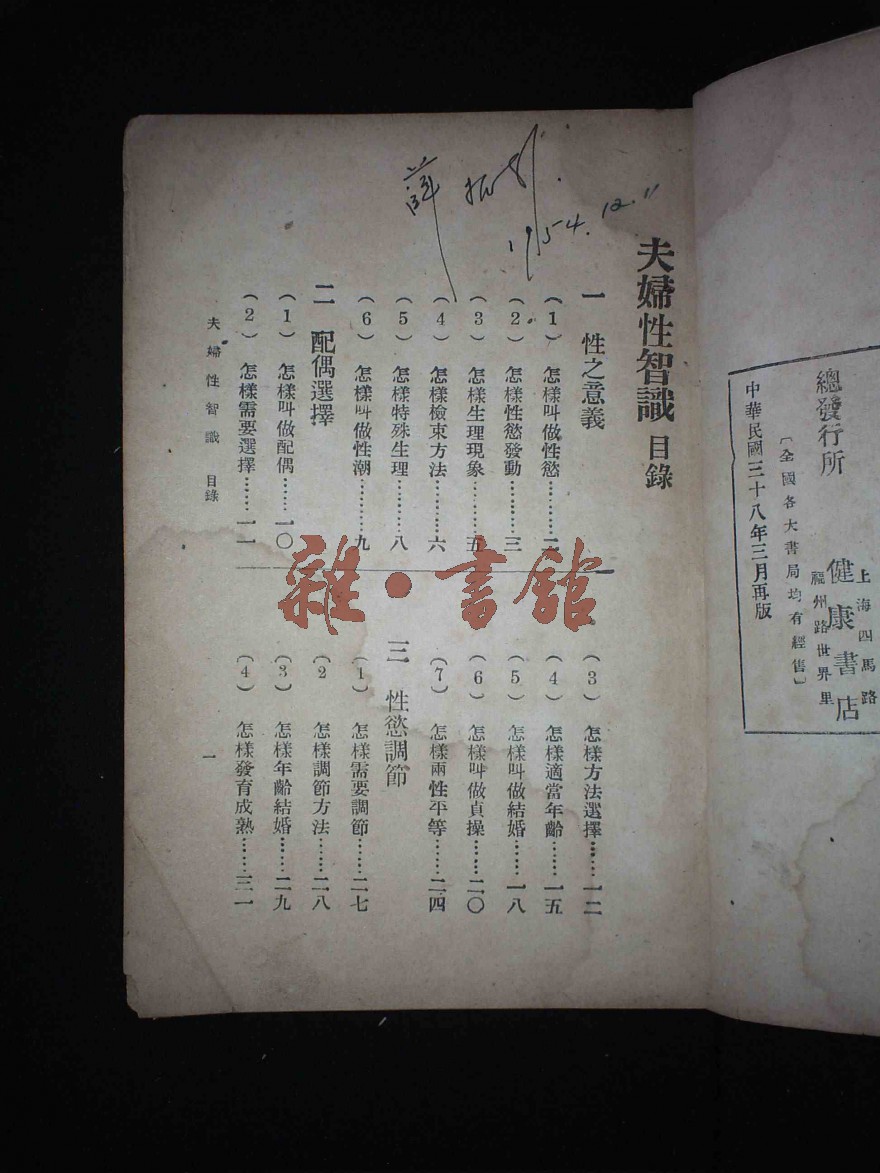 總發行所
上海四馬路
健康書店
福州路世界里
〔全國各大書局均有經售〕
中華民國三十八年三月再版
1954.12.11
夫婦性智識 目錄
一 性之意義
(1) 怎樣叫做性慾……二
(2) 怎樣性慾發動……三
(3) 怎樣生理現象……五
(4) 怎樣檢束方法……六
(5) 怎樣特殊生理……八
(6) 怎樣叫做性潮……九
二 配偶選擇
(1) 怎樣叫做配偶……一〇
(2) 怎樣需要選擇……一一
(3) 怎樣方法選擇……一二
(4) 怎樣適當年齡……一五
(5) 怎樣叫做結婚……一八
(6) 怎樣叫做貞操……二〇
(7) 怎樣兩性平等……二四
三 性慾調節
(1) 怎樣需要調節……二七
(2 怎樣調節方法……二八
(3) 怎樣年齡結婚……二九
(4) 怎樣發育成熟……三一
夫婦性智識 目錄
一
雜·書館